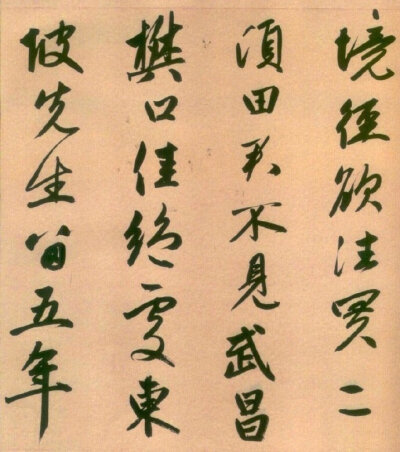 境径欲往買二
須田君不見武昌
樊口佳絶處東
坡先生留五年